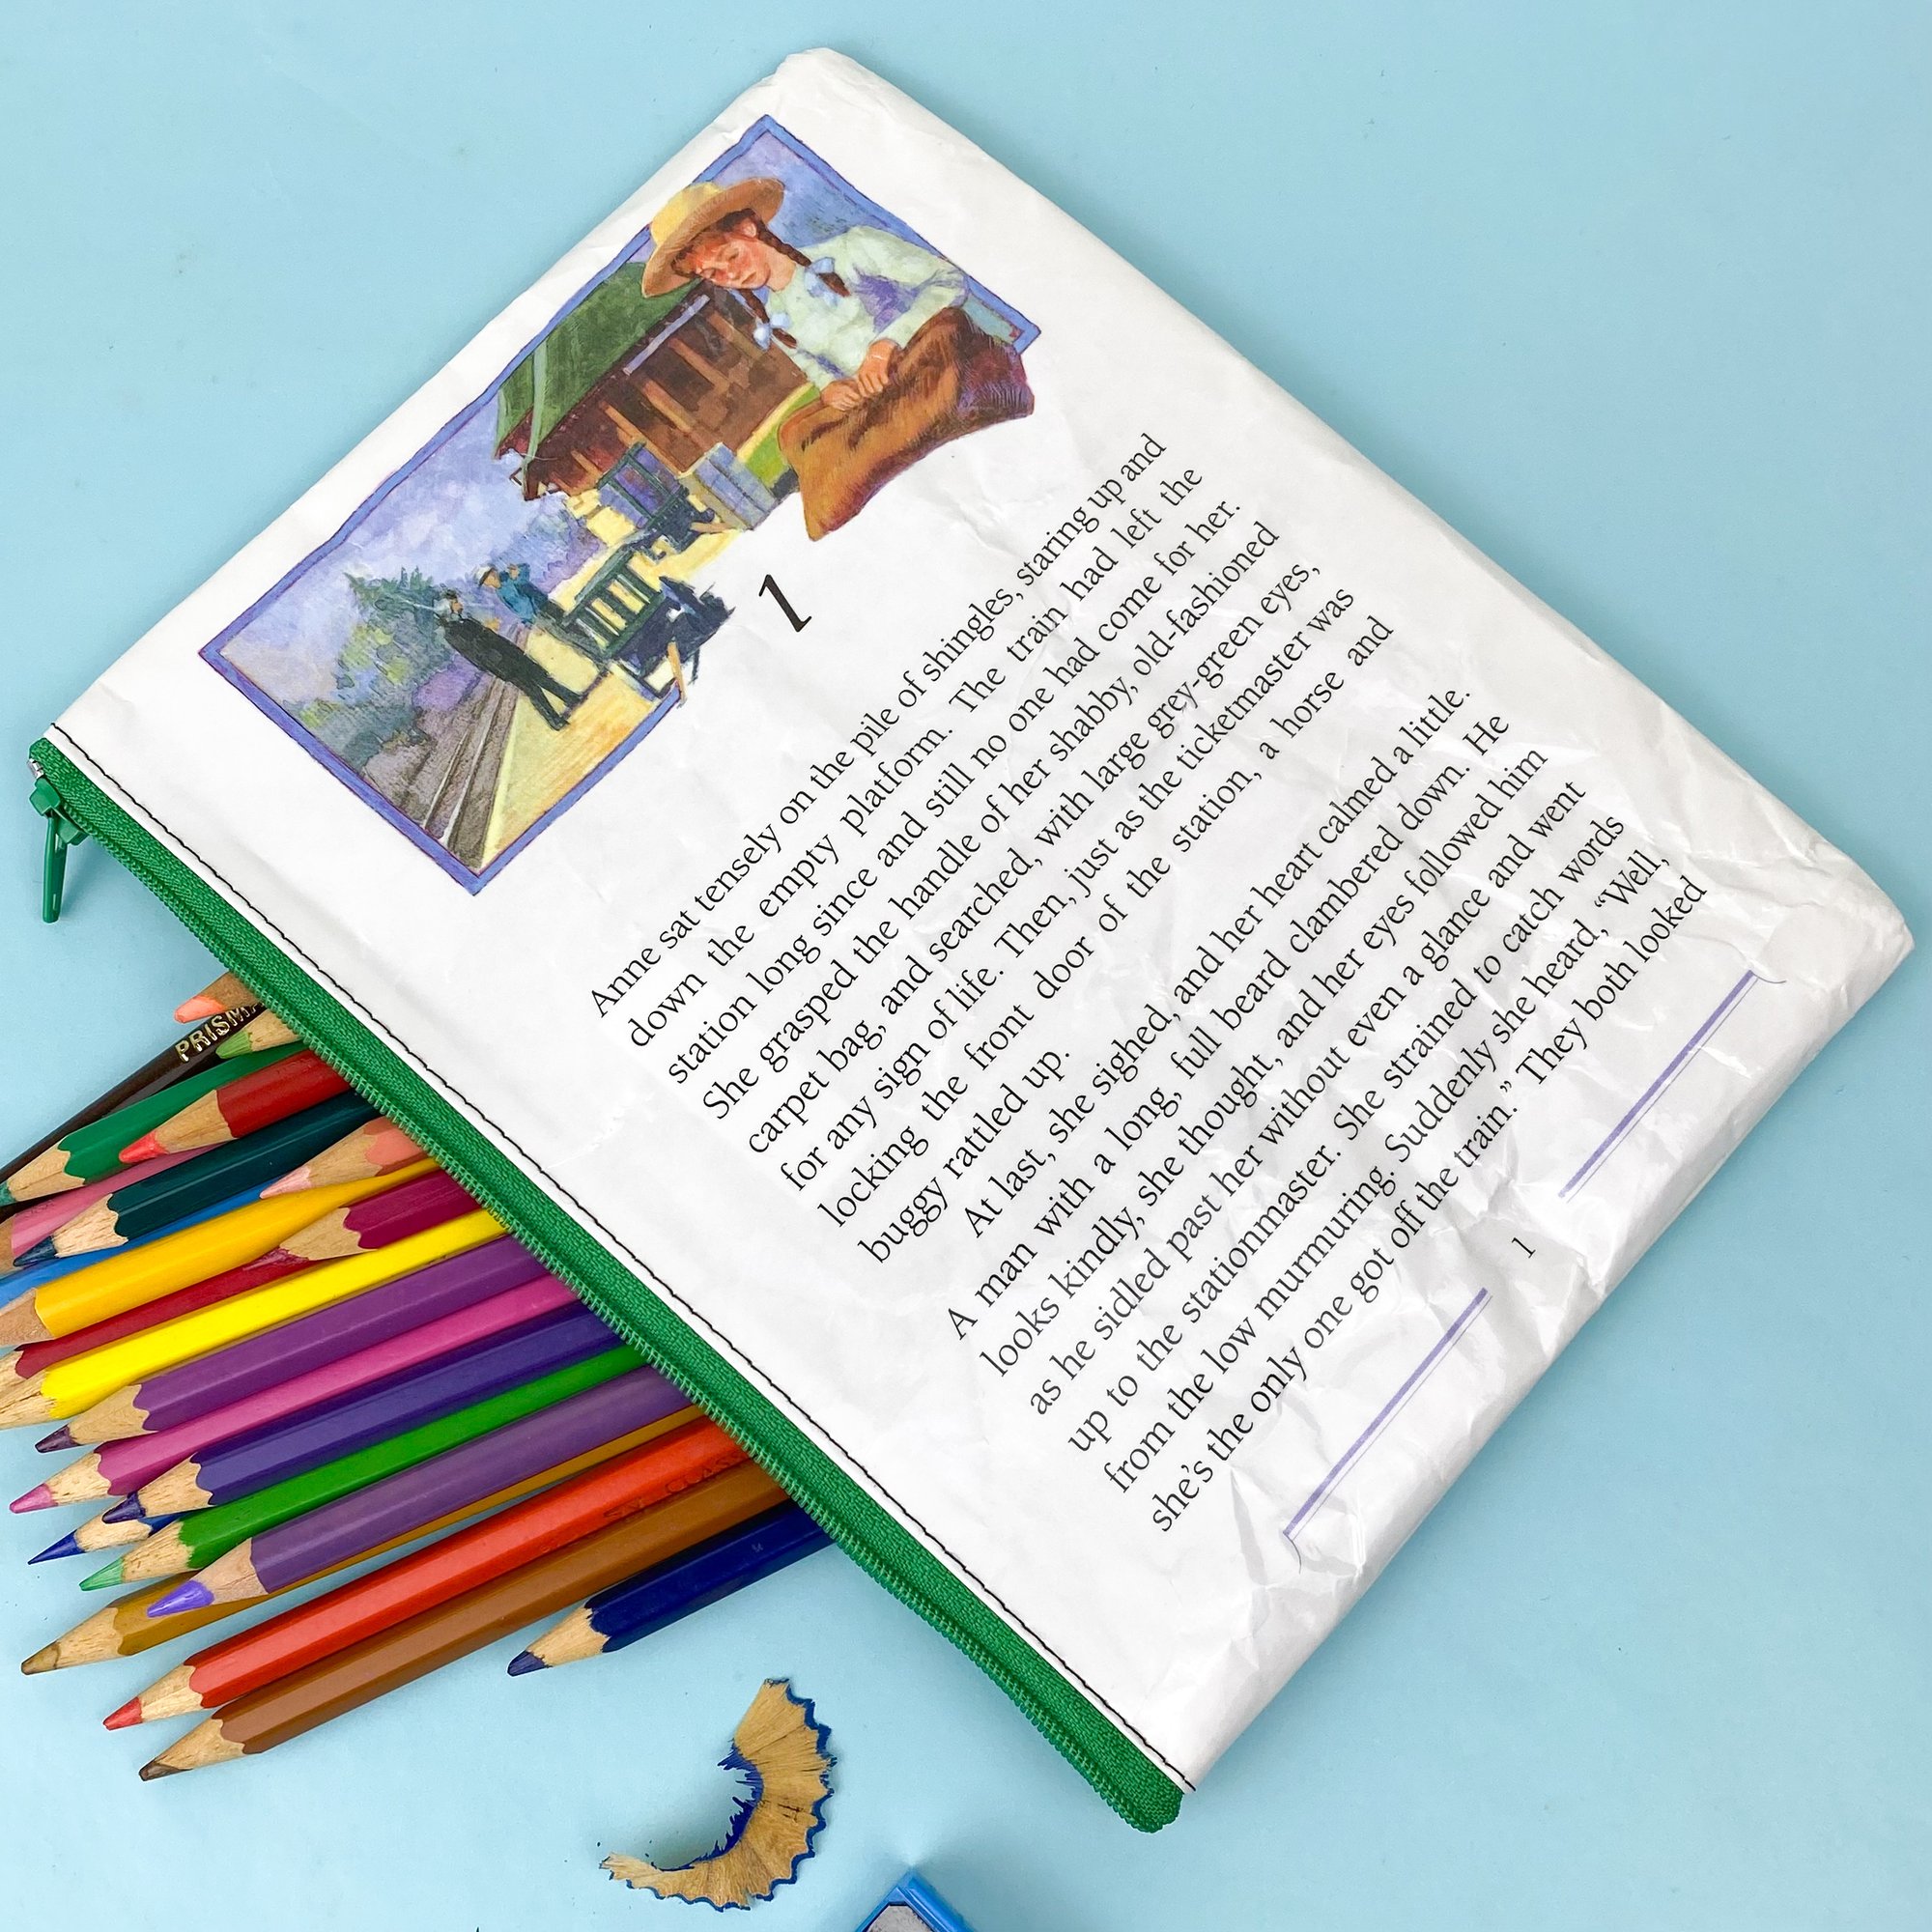 1
Anne sat tensely on the pile of shingles, staring up and
down the empty platform. The train had left the
station long since and still no one had come for her.
She grasped the handle of her shabby, old-fashioned
carpet bag, and searched, with large grey-green eyes,
for any sign of life. Then, just as the ticketmaster was
locking the front door of the station, a horse and
buggy rattled up.
At last, she sighed, and her heart calmed a little.
A man with a long, full beard clambered down. He
looks kindly, she thought, and her eyes followed him
as he sidled past her without even a glance and went
up to the stationmaster. She strained to catch words
from the low murmuring. Suddenly she heard, “Well,
she’s the only one got off the train.” They both looked
1
PRISMA